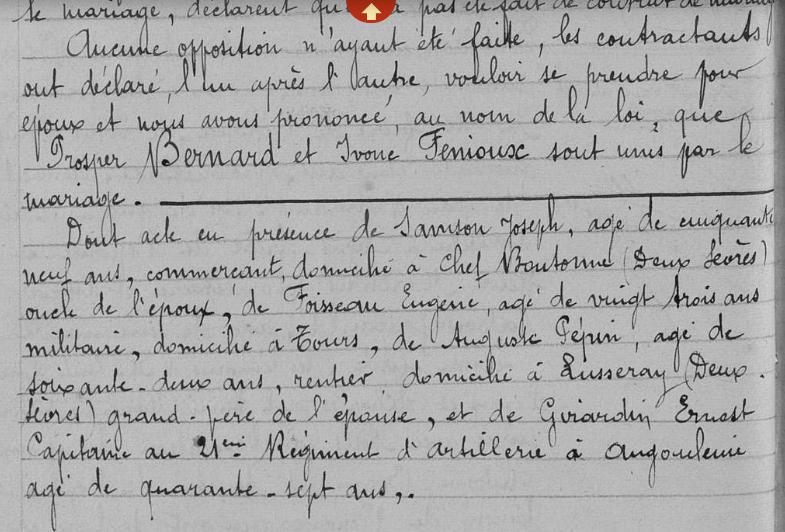 le mariage, déclarent qu' pas été fait de contrat de mariage
Aucune opposition n'ayant été faite, les contractants
ont déclaré, l'un après l'autre, vouloir se prendre pour
époux et nous avons prononcé, au nom de la loi, que
Prosper Bernard et Ivone Fenioux sont unis par le
mariage.
Dont acte en présence de Samson Joseph, agé de cinquante
neuf ans, commercant, domicilié à Chef Boutonne (Deux Sèvres)
oncle de l'époux, de Foisseau Eugène, agé de vingt trois ans
militaire, domicilié à Tours, de Auguste Pépin, agé de
soixante-deux ans, rentier, domicilié à Lusseray (Deux-
Sèvres) grand-père de l'épouse, et de Girardin Ernest
Capitaine au 21eme Régiment d'artillerie à Angoulême
agé de quarante-sept ans,.